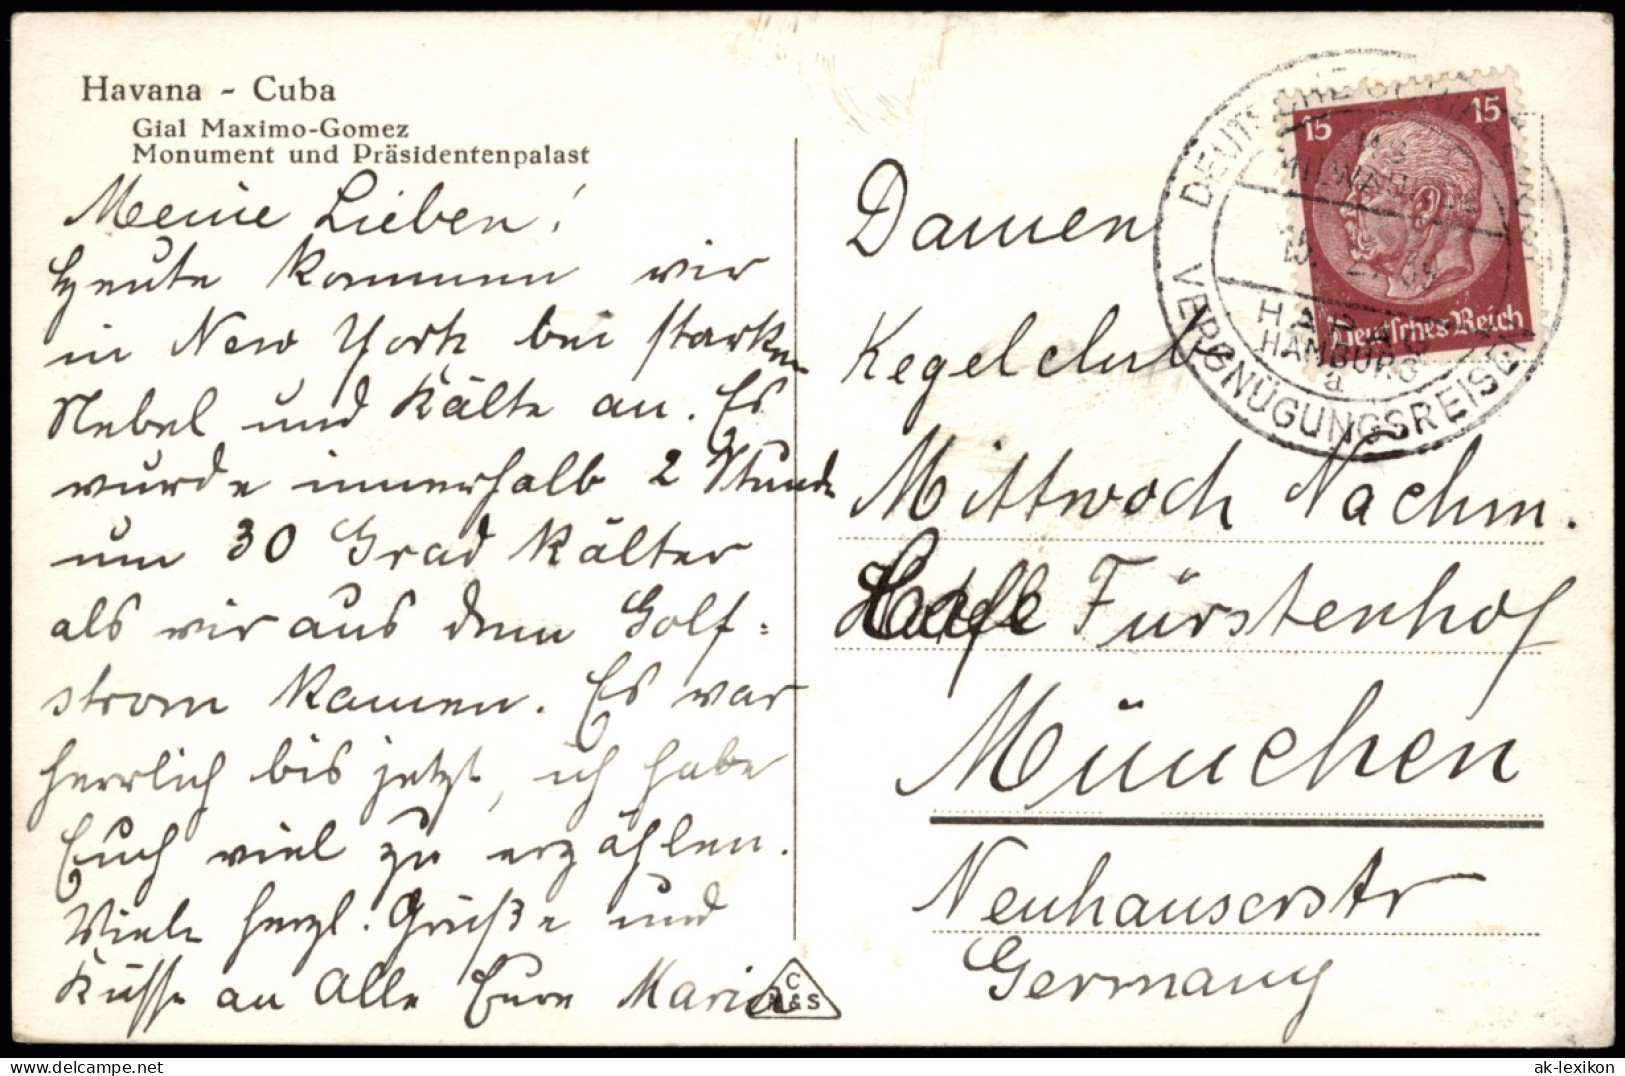 Havana - Cuba
Gial Maximo-Gomez
Monument und Präsidentenpalast
Meine Lieben!
Heute kommen wir
in New York bei starkem
Nebel und Kälte an. Es
wurde innerhalb 2 Stunde
um 30 Grad kälter
als wir aus dem Golf=
strom kamen. Es war
herrlich bis jetzt, ich habe
Euch viel zu erzählen.
Viele herzl. Grüße und
Küsse an alle Eure Maria
C
&S
Damen
Kegelclub
Mittwoch Nachm.
Cafe Fürstenhof
München
Neuhauserstr
Germany
15 15
Deutsches Reich
DEUTSCHE
M.S.
MILWAUKEE
15. 2. 39
HAPAG
HAMBURG
a
VERGNÜGUNGSREISEN
ak-lexikon